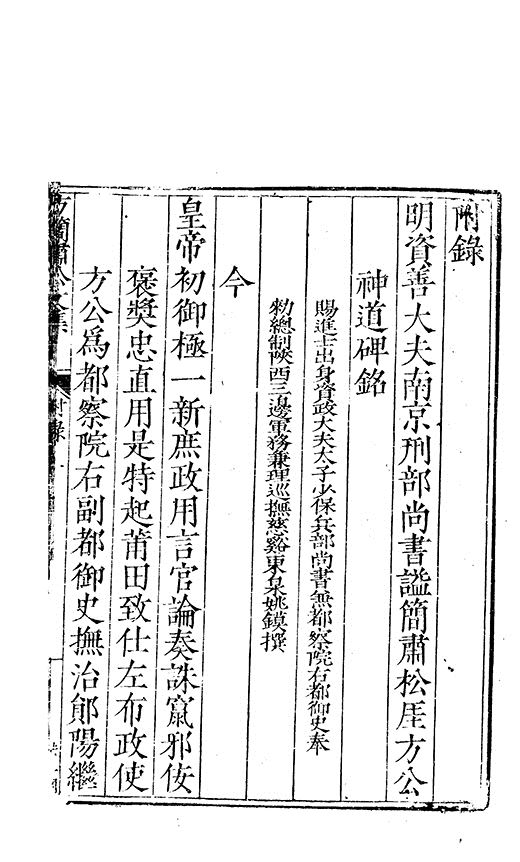 附錄
明資善大夫南京刑部尚書謚簡肅松厓方公
神道碑銘
賜進士出身資政大夫太子少保兵部尚書兼都察院右都御史奉
勑總制陝西三邊軍務兼理巡撫慈谿東泉姚鏌撰
今
皇帝初御極一新庶政用言官論奏誅竄邪佞
褒奬忠直用是特起莆田致仕左布政使
方公爲都察院右副都御史撫治鄖陽繼
方簡肅公文集
附錄
一